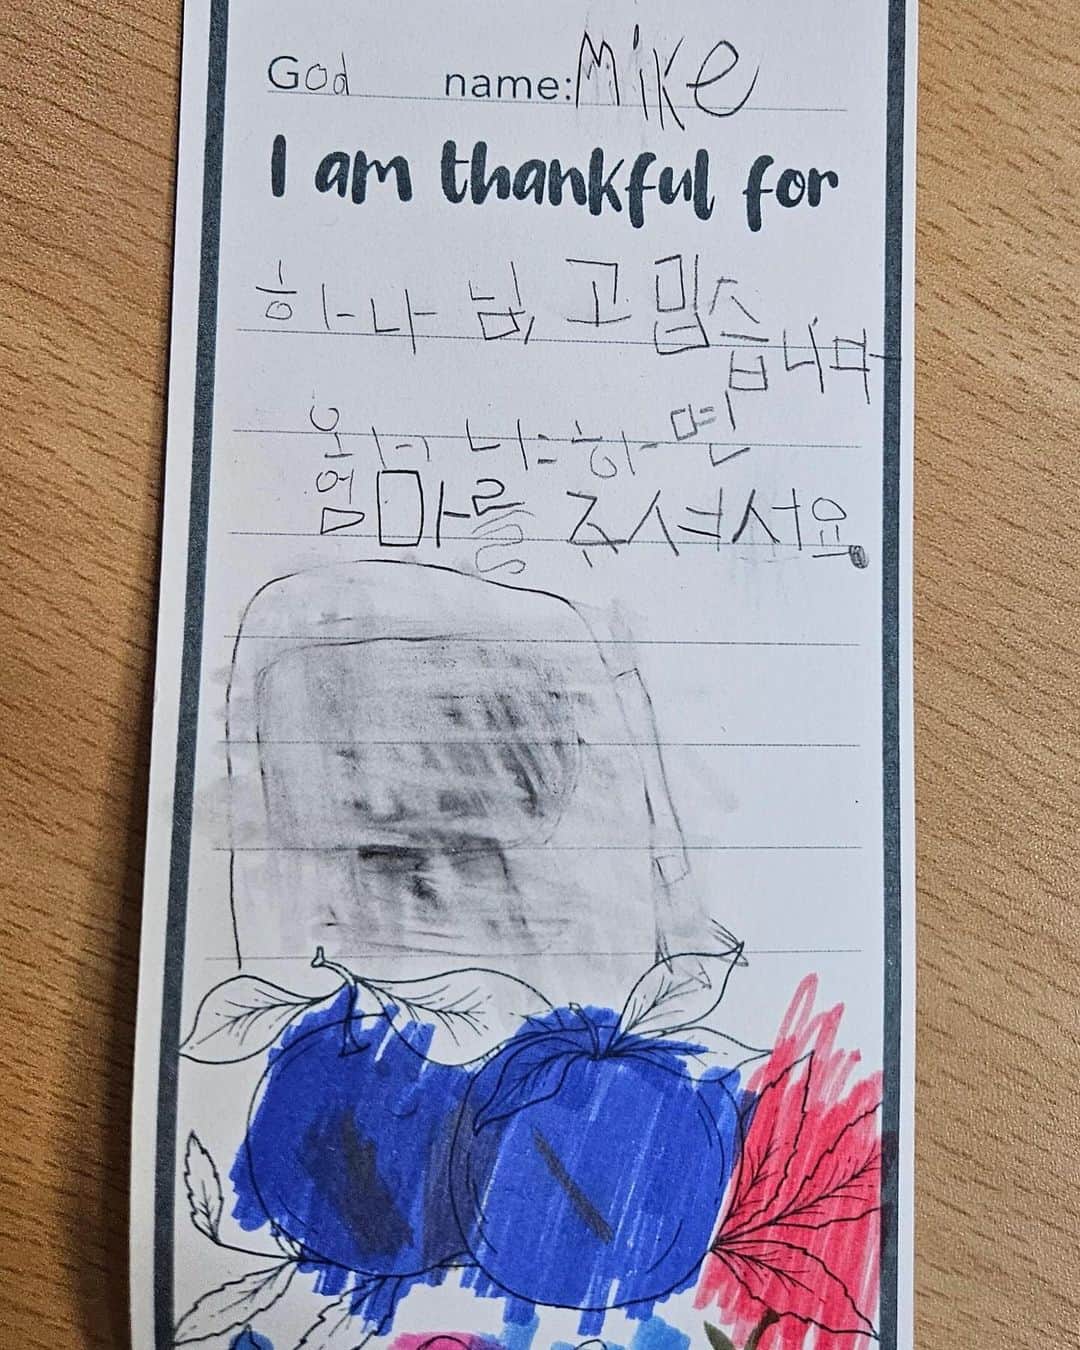 God name: Mike
I am thankful for
하나님, 고맙습니다
왜냐하면
엄마를 주셔서요.